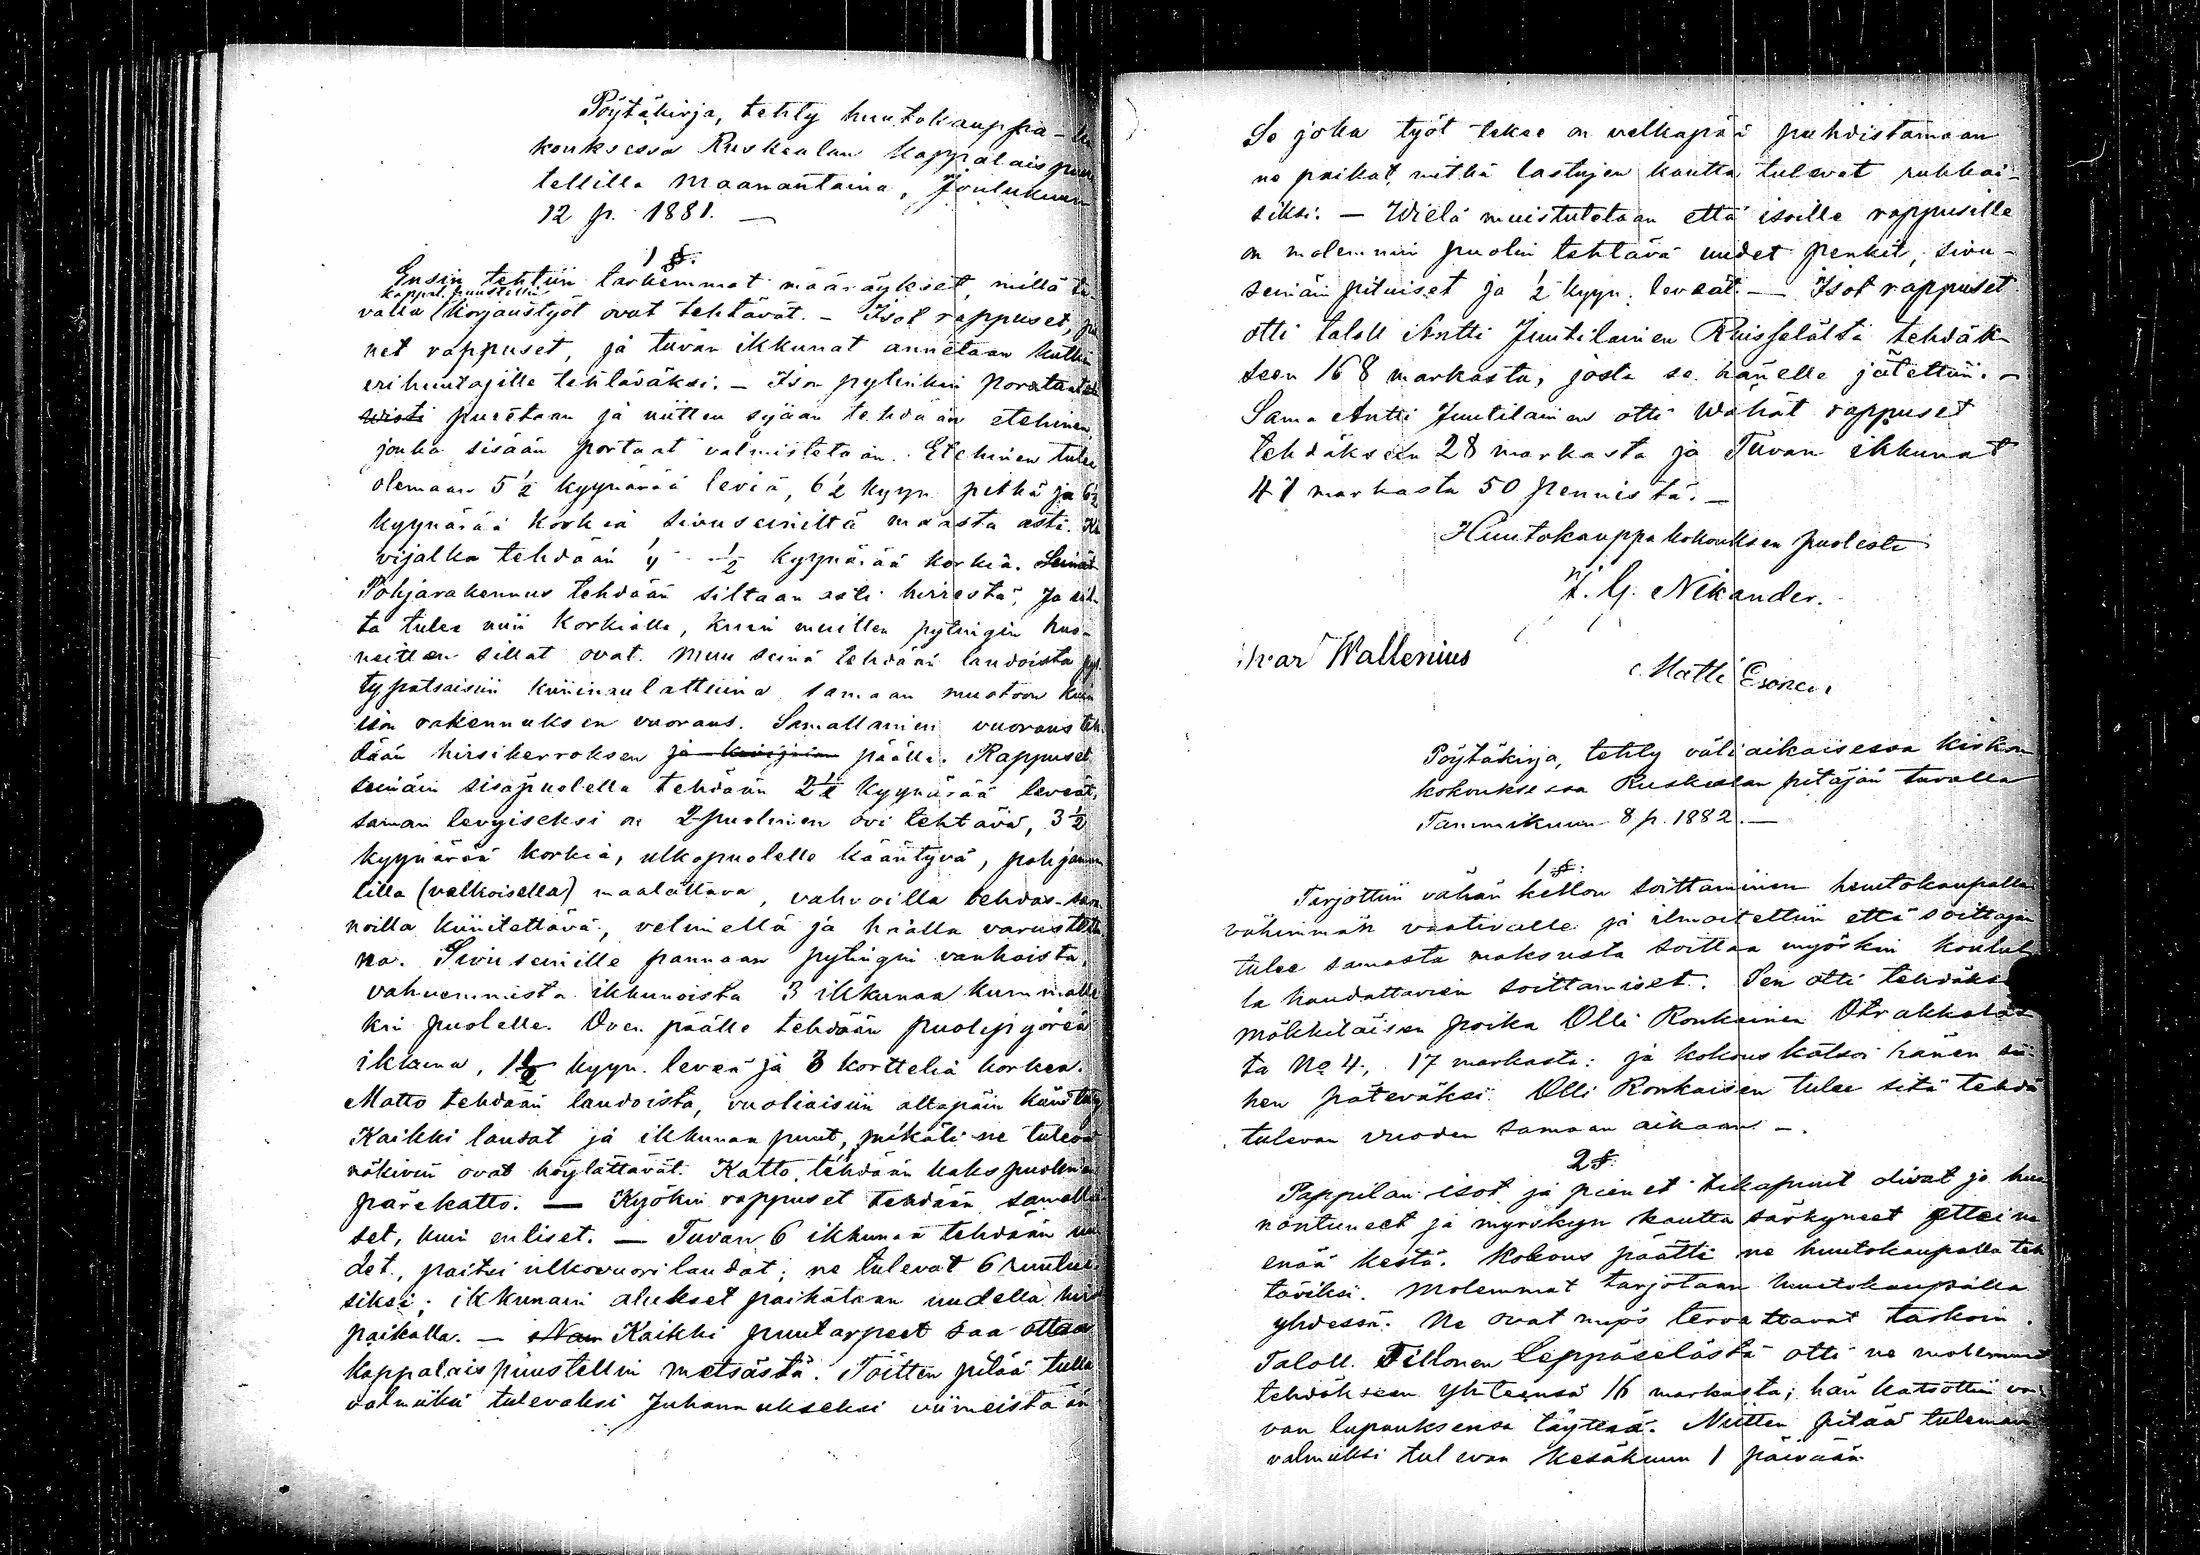 Pöytäkirja, tehty huutokauppa-
kouksessa Ruskealan kappalais
tellilla Maanantaina, Joulukuun
12 p. 1881. —
1 §.
Ensin tehtiin tarkemmat määräykset, millä ta-
kappal. puustellin
valla korjaustyöt ovat tehtävät. - Isot rappuset,
net rappuset, ja tuvan ikkunat annetaan kukin
eri huutajille tehtäväksi. - Ison pytinkin
puretaan ja niitten sijaan tehdään etehinen,
jonka sisään portaat valmistetaan. Etehinen tulee
olemaan 5 1/2 kyynärää leviä, 6 1/2 kyyn. pitkä ja 6 1/2
kyynärää korkia sivuseiniltä maasta asti. Ki
vijalka tehdään 1/4 - 1/2 kyynärää korkia.
Pohjarakennus tehdään siltaan asti hirrestä, Ja sil-
ta tulee niin korkialle, kuin muitten pytingin huo-
neitten sillat ovat. Muu seinä tehdään laudoista
typatsaisiin kiininaulattuina samaan muotoon kuin
ison rakennuksen vuoraus. Samallainen vuoraus teh
dään hirsikerroksen päälle. Rappuset
seinäin sisäpuolella tehdään 2 1/2 kyynärää leveät,
saman levyiseksi on 2-puolinen ovi tehtävä, 3 1/2
kyynärää korkia, ulkopuolelle kääntyvä,
lilla (valkoisella) maalattava, vahvoilla tehdas-sara
noilla kiinitettävä, velmiellä ja haalla varustettu
na. Sivuseinille pannaan pytingin vanhoista,
vahvemmista ikkunoista 3 ikkunaa kummalle
kin puolelle. Oven päälle tehdään puolipyöreä
ikkuna, 1 1/2 kyyn. leveä ja 3 korttelia korkea.
Matto tehdään laudoista, vuoliaisiin altapäin
Kaikki laudat ja ikkunan puut, mikäli ne tulevat
näkiviin ovat höylättävät. Katto tehdään kakspuolinen
pärekatto. — Kyökin rappuset tehdään samallai
set, kuin entiset. — Tuvan 6 ikkunaa tehdään uu
det, paitsi ulkovuorilaudat; ne tulevat 6 ruutui
siksi; ikkunain alukset paikataan uudella hirs
paikalla. — Kaikki puutarpeet saa ottaa
kappalaispuustellin metsästä. Töitten pitää tulla
valmiiksi tulevaksi Juhannukseksi viimeistään
Se joka työt tekee on velkapää puhdistamaan
ne paikat, mitkä lastujen kautta tulevat rukkai-
siksi. — Wielä muistutetaan että isoille rappusille
on molemmin puolin tehtävä uudet penkit, sivu-
seinäin pituiset ja 1/2 kyyn. leveät. — Isot rappuset
otti taloll Antti Juutilainen Ruisselältä tehdäk-
seen 168 markasta, josta se hänelle jätettiin. —
Sama Antti Juutilainen otti Wähät rappuset
tehdäkseen 28 markasta ja Tuvan ikkunat
47 markasta 50 pennistä. —
Huutokauppakokouksen puolesta
K. G. Nikander.
Ivar Wallenius
Matti Esonen
Pöytäkirja, tehty väliaikaisessa kirkon
kokouksessa Ruskealan pitäjän tuvalla
Tammikuun 8 p. 1882. —
1 §.
Tarjottiin vähän kellon soittaminen huutokaupalla
vähimmän vaativalle ja ilmoitettiin että soittajan
tulee samasta maksusta soittaa myöskin
la haudattavien soittamiset. Sen otti tehdäkse
mökkiläisen poika Olli Ronkainen Otrakkalas
ta No 4, 17 markasta: ja kokous katsoi hänen sii-
hen päteväksi. Olli Ronkaisen tulee sitä tehdä
tulevan vuoden samaan aikaan —.
2 §.
Pappilan isot ja pienet tikapuut olivat jo huo
nontuneet ja myrskyn kautta särkyneet ettei ne
enää kestä. Kokous päätti ne huutokaupalla teh
täviksi. Molemmat tarjotaan huutokaupalla
yhdessä. Ne ovat myös tervattavat tarkoin.
Taloll. Tillonen Leppäselästä otti ne molemmat
tehdäkseen yhteensä 16 markasta; hän katsottiin voi
van lupauksensa täyttää. Niitten pitää tuleman
valmiiksi tulevan Kesäkuun 1 päivään